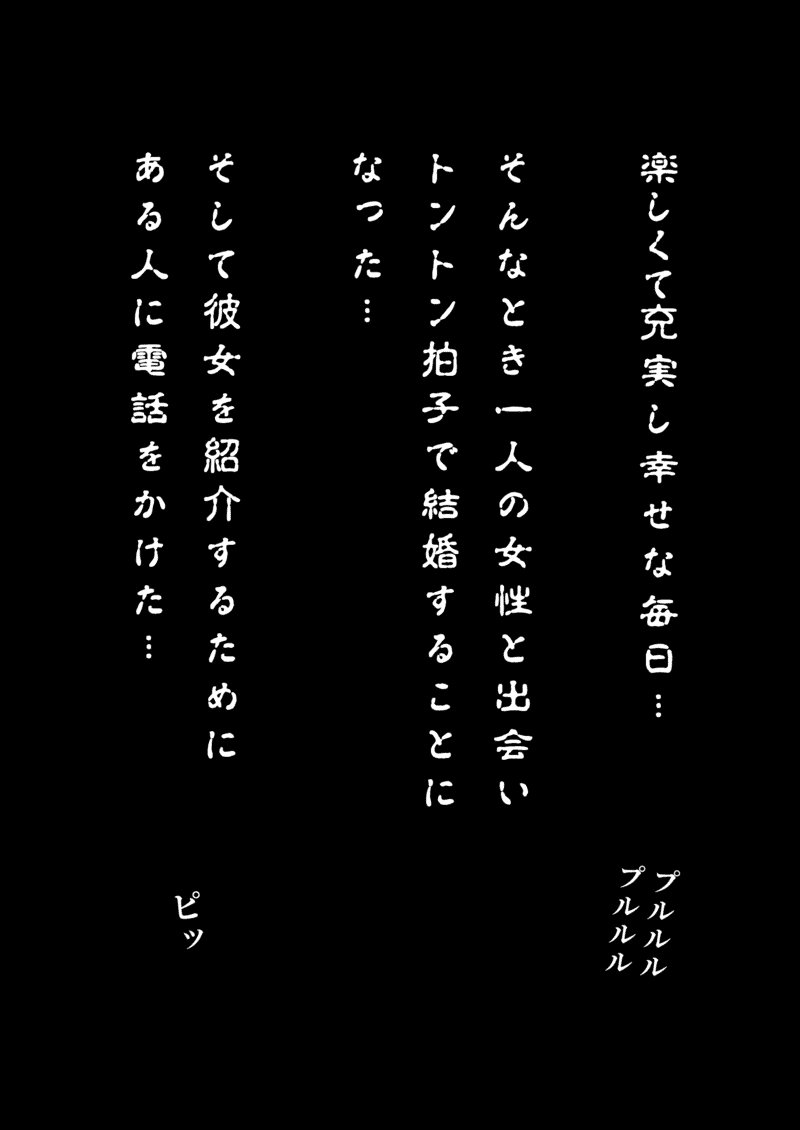 楽しくて充実し幸せな毎日…
そんなとき一人の女性と出会い
トントン拍子で結婚することに
なった…
そして彼女を紹介するために
ある人に電話をかけた…
プルルル
プルルル
ピッ